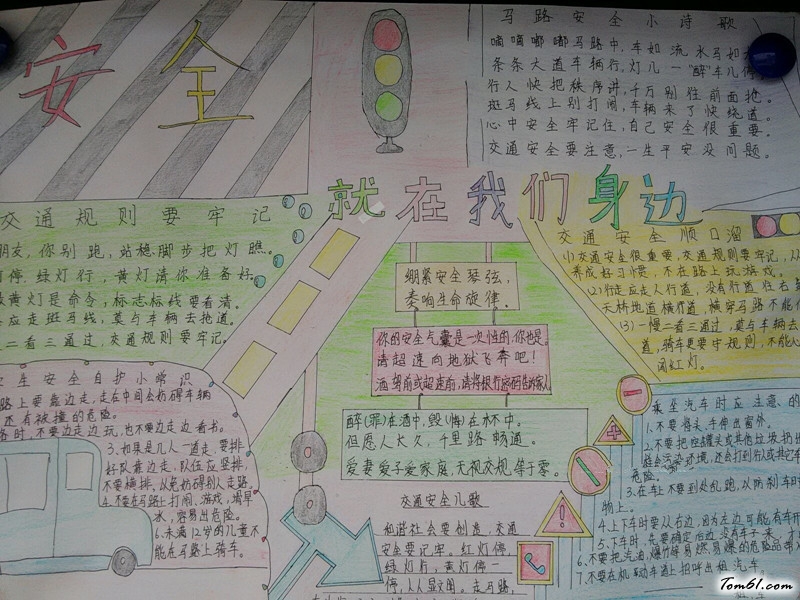 安全
马路安全小诗歌
嘀嘀嘟嘟马路中,车如流水马如
条条大道车辆行,灯儿一"醉"车儿停
行人快把秩序讲,千万别往前面抢。
斑马线上别打闹,车辆来了快绕道。
心中安全牢记住,自己安全很重要。
交通安全要注意,一生平安没问题。
就在我们身边
交通规则要牢记
朋友,你别跑,站稳脚步把灯瞧。
停,绿灯行,黄灯请你准备好。
黄灯是命令,标志标线要看清。
应走斑马线,莫与车辆去抢道。
二看三通过,交通规则要牢记。
绷紧安全琴弦,
奏响生命旋律。
你的安全气囊是一次性的,你也是。
请超速向地狱飞奔吧!
酒驾前或超速前,请将银行密码告诉家人
醉(罪)在酒中,毁(悔)在杯中。
但愿人太久,千里路畅通。
爱妻爱子爱家庭,无视交规等于零。
交通安全顺口溜
(1)交通安全很重要,交通规则要牢记,从
养成好习惯,不在路上玩游戏。
(2)行走应走人行道,没有行道往右
天桥地道横行道,横穿马路不能
(3)一慢二看三通过,莫与车辆去
道,骑车更要守规则,不能
闯红灯。
生安全自护小常识
路上要靠边走,走在中间会妨碍车辆
还有被撞的危险。
路时,不要边走边玩,也不要边走边看书。
3.如果是几人一道走,要排
好队靠边走,队伍应竖排,
不要横排,以免妨碍别人走路。
4.不要在马路上打闹,游戏,
冰,容易出危险。
6.未满12岁的儿童不
能在马路上骑车。
交通安全儿歌
和谐社会要创造,交通
安全要记牢。红灯停,
绿灯行,黄灯停一
停,人人显文明,走马路,
乘坐汽车时应注意的
1.不要将头、手伸出窗外。
2.不要把空罐头或其他垃圾
能会污染环境,还会打到行人或其它车
危险。
3.在车上不要到处乱跑,以防刹车时
物上。
4.上下车时要从右边,因为左边可能有车
5.下车时,先要确定后边没有车子来,才
6.不要把汽油、爆竹等易燃易爆的危险品带
7.不要在机动车道上招呼出租汽车。
Tom61.com